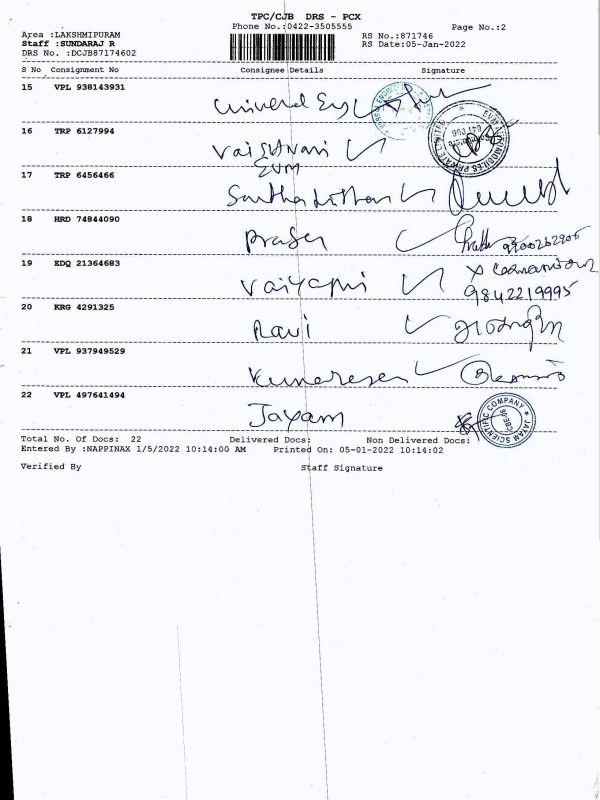 TPC/CJB DRS - PCX
Phone No.:0422-3505555
Page No.:2
Area :LAKSHMIPURAM
RS No.:871746
Staff :SUNDARAJ R
RS Date:05-Jan-2022
DRS No. :DCJB87174602
S No Consignment No Consignee Details Signature
15 VPL 938143931
Universal Eng
16 TRP 6127994
Vaishnavi
EVM
17 TRP 6456466
18 HRD 74844090
9500262906
19 EDQ 21364683
9842219995
20 KRG 4291325
Ravi
21 VPL 937949529
Kumaresan
22 VPL 497641494
Jayam
JAYAM SCIENTIFIC COMPANY
CBE
Total No. Of Docs: 22 Delivered Docs: Non Delivered Docs:
Entered By :NAPPINAX 1/5/2022 10:14:00 AM Printed On: 05-01-2022 10:14:02
Verified By Staff Signature